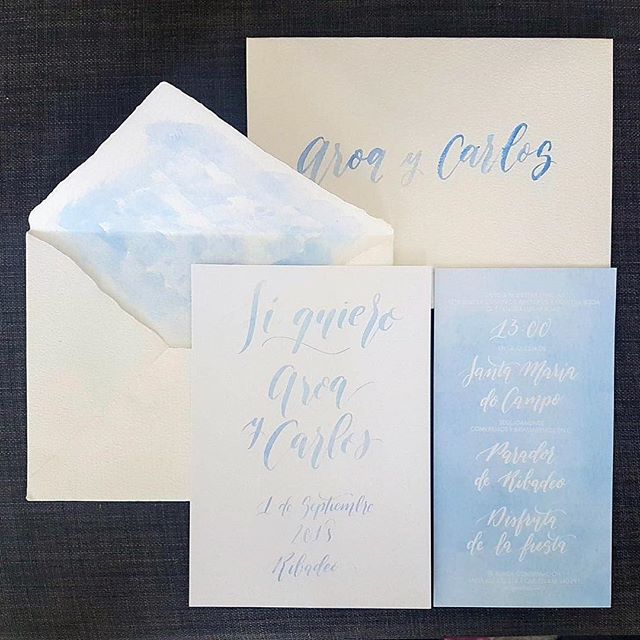 Aroa y Carlos
Sí quiero
Aroa
y Carlos
1 de Septiembre
2018
Ribadeo
13:00
Santa María
do Campo
Parador
de Ribadeo
Disfruta
de la fiesta